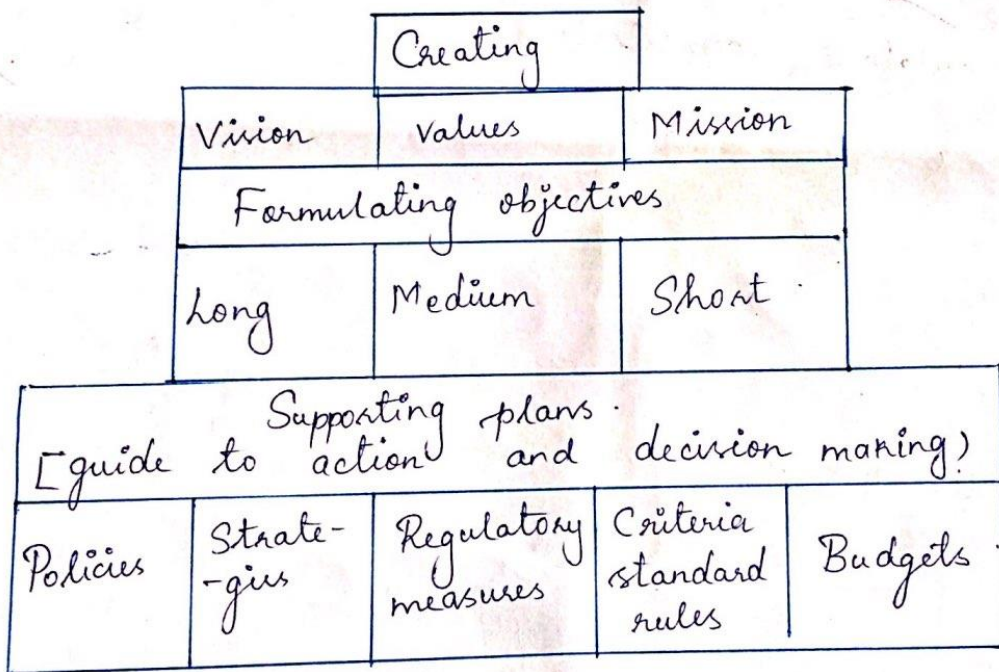 Creating
Vision values Mission
Formulating objectives
Long Medium Short
Supporting plans.
[guide to action and decision making)
Policies Strate- Regulatory Criteria Budgets.
-gies measures standard
rules